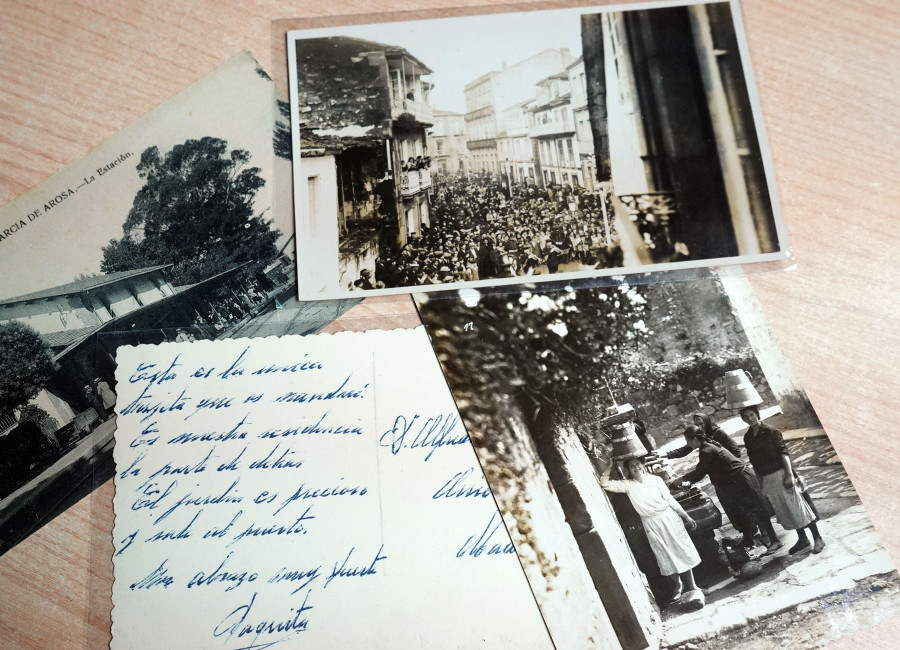 ARCIA DE AROSA.—La Estación.
12
Esta es la unica
tarjita que os mandaré.
Es nuestra residencia
la parte de detras
El jardin es precioso
y sale al puerto.
Un abrazo muy fuerte
Paquita
D. Alfre